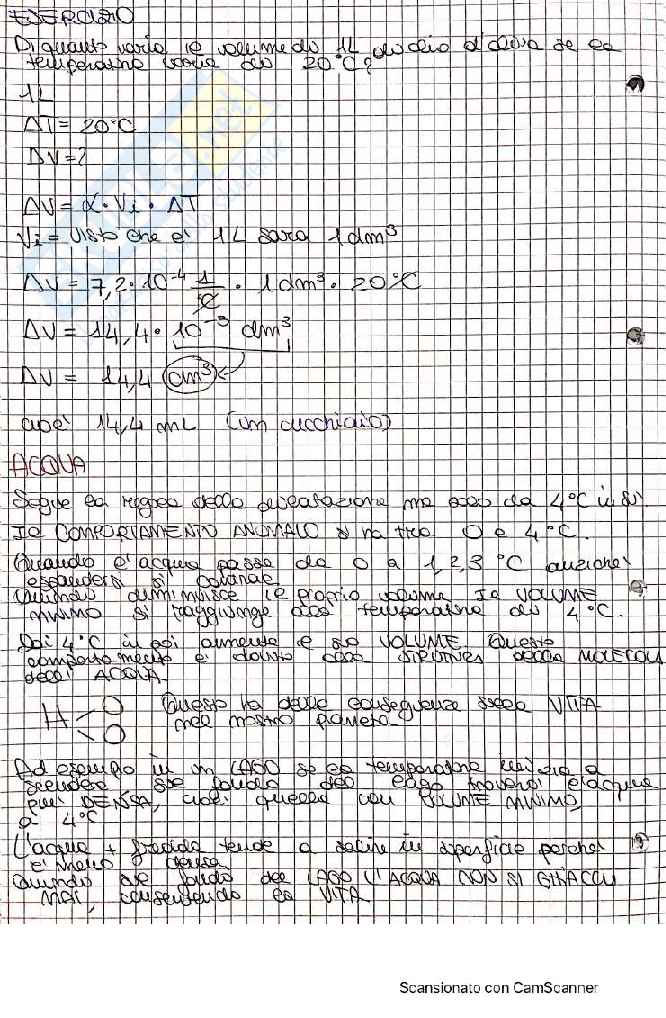 ESERCIZIO
Di quanto varia il volume di 1L di olio d'oliva se la
temperatura varia di 20°C?
1L
ΔT = 20°C
ΔV = ?
ΔV = α · Vi · ΔT
Vi = visto che è 1L sarà 1dm³
ΔV = 7,2 · 10⁻⁴ 1/°C · 1dm³ · 20°C
ΔV = 14,4 · 10⁻³ dm³
ΔV = 14,4 cm³
cioè 14,4 mL (un cucchiaio)
ACQUA
Segue la regola della dilatazione ma solo da 4°C in su
Il COMPORTAMENTO ANOMALO si ha tra 0 e 4°C.
Quando l'acqua passa da 0 a 1,2,3 °C anziché
espandersi si
Quindi diminuisce il proprio volume. Il VOLUME
MINIMO si raggiunge alla temperatura di 4°C.
Dai 4°C in poi aumenta il suo VOLUME. Questo
comportamento è dovuto alla della MOLECOLA
dell'ACQUA.
H O O Questo ha delle conseguenze sulla VITA
nel nostro pianeta.
Ad esempio in un LAGO se la temperatura inizia a
scendere sul fondo del lago troverò l'acqua
più DENSA, cioè quella con VOLUME MINIMO,
a 4°C
L'acqua + fredda tende a salire in superficie perché
è meno densa
Quindi sul fondo del LAGO L'ACQUA NON SI GHIACCIA
MAI, consentendo la VITA
Scansionato con CamScanner